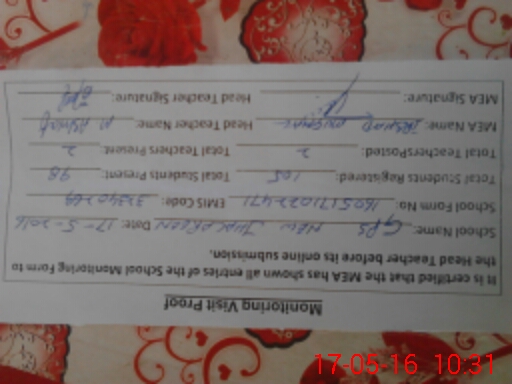 Monitoring Visit Proof
It is certified that the MEA has shown all entries of the School Monitoring Form to
the Head Teacher before its online submission.
School Name: GPS NEW Date: 17-5-2016
School Form No: EMIS Code:
Total Students Registered: 105 Total Students Present: 98
Total TeachersPosted: 2 Total Teachers Present: 2
MEA Name: Head Teacher Name: M ASHRAF
MEA Signature: Head Teacher Signature:
17-05-16 10:31